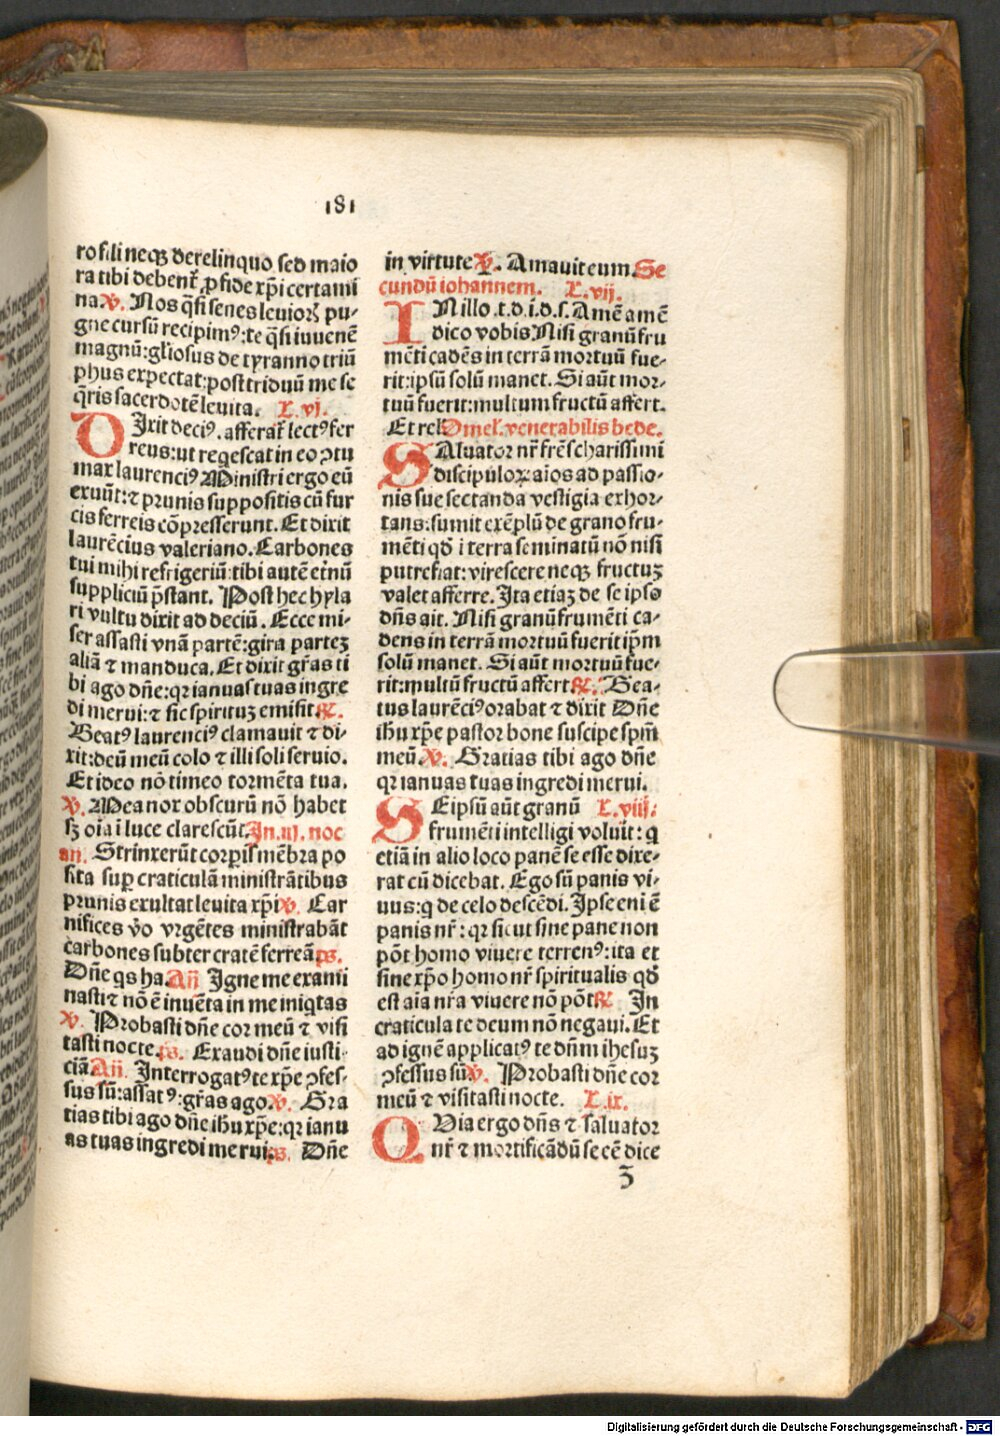 181
ro fili neqꝫ derelinquo sed maio
ra tibi debent᷑ ꝓ fide xp̄i certami
na ℣. Nos q̄si senes leuioris pu⸗
gne cursū recipimꝰ: te q̄si iuuenē
magnū: gl̄iosus de tyranno triū
phus expectat: post triduū me se
q̄ris sacerdotē leuita. L. vj.
DIxit deciꝰ. afferat᷑ lectꝰ fer
reus: ut reqescat in eo ꝯtu
max laurenciꝰ Ministri ergo eū
exuūt: ⁊ prunis suppositis cū fur
cis ferreis cōpresserunt. Et dixit
laurēcius valeriano. Carbones
tui mihi refrigeriū: tibi autē et᷑nū
suppliciū p̄stant. Post hec hyla
ri vultu dixit ad deciū. Ecce mi⸗
ser assasti vnā partē: gira parteꝫ
aliā ⁊ manduca. Et dixit gr̄as ti
bi ago dn̄e: qꝛ ianuas tuas ingre
di merui: ⁊ sic spirituꝫ emisit ℟.
Beatꝰ laurenciꝰ clamauit ⁊ di⸗
xit: deū meū colo ⁊ illi soli seruio.
Et ideo nō timeo tormēta tua.
℣. Mea nox obscurū nō habet
sꝫ oīa ī luce clarescūt. In. iij. noc
an. Strinxerūt corꝑis mēbra po
sita suꝑ craticulā ministrātibus
prunis exultat leuita xp̄i ℣. Car
nifices v̄o vrgētes ministrabāt
carbones subter cratē ferreā ps.
Dn̄e qs ha. Añ Igne me exami
nasti ⁊ nō ē inuēta in me iniqtas
℣. Probasti dn̄e cor meū ⁊ visi
tasti nocte. ps. Exaudi dn̄e iusti⸗
ciā Añ. Interrogatꝰ te xp̄e ꝯfes⸗
sus sū: assatꝰ: gr̄as ago ℣. Gra
tias tibi ago dn̄e ih̄u xp̄e: qꝛ ianu
as tuas ingredi merui. ps. Dn̄e
in virtute ℣. Amauit eum. Se
cundū iohannem. L. vij.
IN illo .t. d. i. d. s. Amē amē
dico vobis Nisi granū fru
mēti cadēs in terrā mortuū fue⸗
rit: ipsū solū manet. Si aūt mor⸗
tuū fuerit: multum fructū affert.
Et rel Omel. venerabilis bede.
SAluator nr̄ fr̄es charissimi
discipuloꝝ aīos ad passio⸗
nis sue sectanda vestigia exhor⸗
tans: sumit exēplū de grano fru⸗
mēti qd̄ ī terra seminatū nō nisi
putrefiat: virescere neqꝫ fructuꝫ
valet afferre. Ita etiaꝫ de se ipso
dn̄s ait. Nisi granū frumēti ca⸗
dens in terrā mortuū fuerit ip̄m
solū manet. Si aūt mortuū fue⸗
rit: multū fructū affert ℟. Bea⸗
tus laurēciꝰ orabat ⁊ dixit Dn̄e
ih̄u xp̄e pastor bone suscipe sp̄m
meū. ℣. Gratias tibi ago dn̄e
qꝛ ianuas tuas ingredi merui.
SEipsū aūt granū L. viij.
frumēti intelligi voluit: q
etiā in alio loco panē se esse dixe⸗
rat cū dicebat. Ego sū panis vi⸗
uus: q de celo descēdi. Ipse eni ē
panis nr̄: qꝛ sicut sine pane non
pōt homo viuere terrenꝰ: ita et
sine xp̄o homo nr̄ spiritualis qd̄
est aīa nr̄a viuere nō pōt ℟ In
craticula te deum nō negaui. Et
ad ignē applicatꝰ te dn̄m ihesuꝫ
ꝯfessus sū ℣. Probasti dn̄e cor
meū ⁊ visitasti nocte. L. ix.
QVia ergo dn̄s ⁊ saluator
nr̄ ⁊ mortificādū se cē dice
ʒ̄
Digitalisierung gefördert durch die Deutsche Forschungsgemeinschaft - DFG